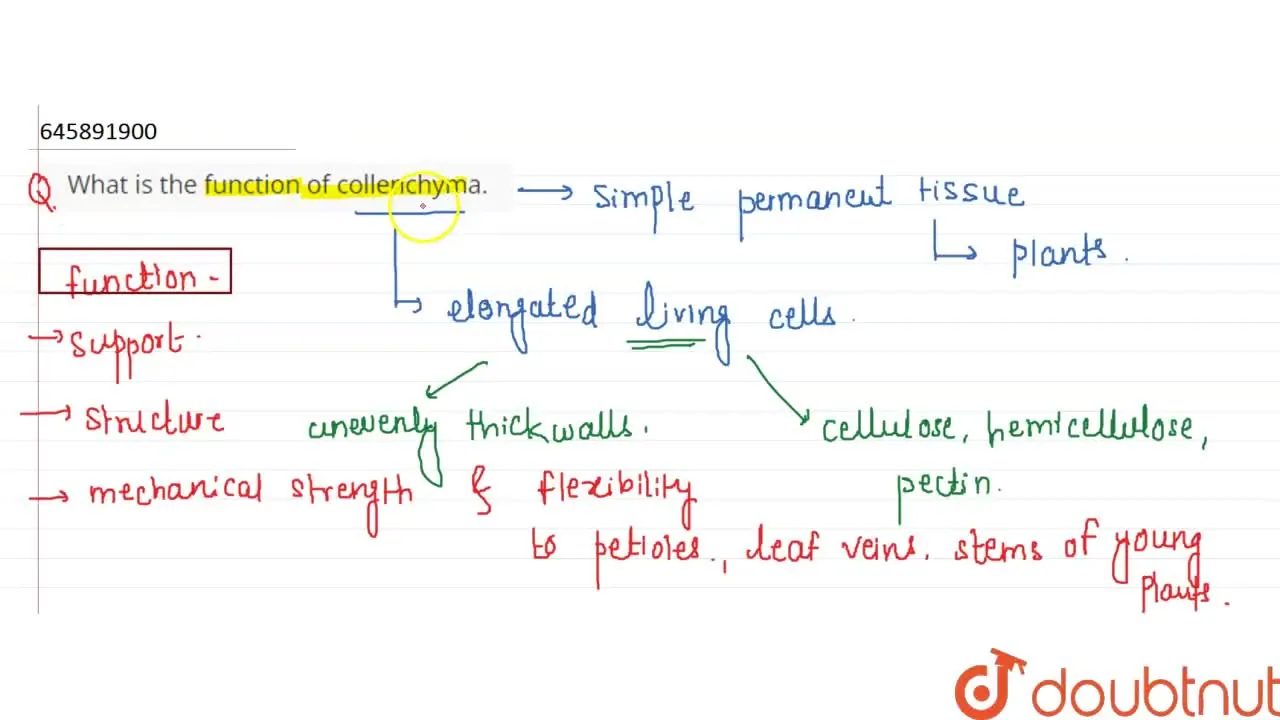 645891900
Q. What is the function of collenchyma. → simple permanent tissue
↳ plants.
function -
↳ elongated living cells.
→ support.
→ structure
unevenly thick walls.
cellulose, hemicellulose,
pectin.
→ mechanical strength & flexibility
to petioles., leaf veins. stems of young
plants.
doubtnut